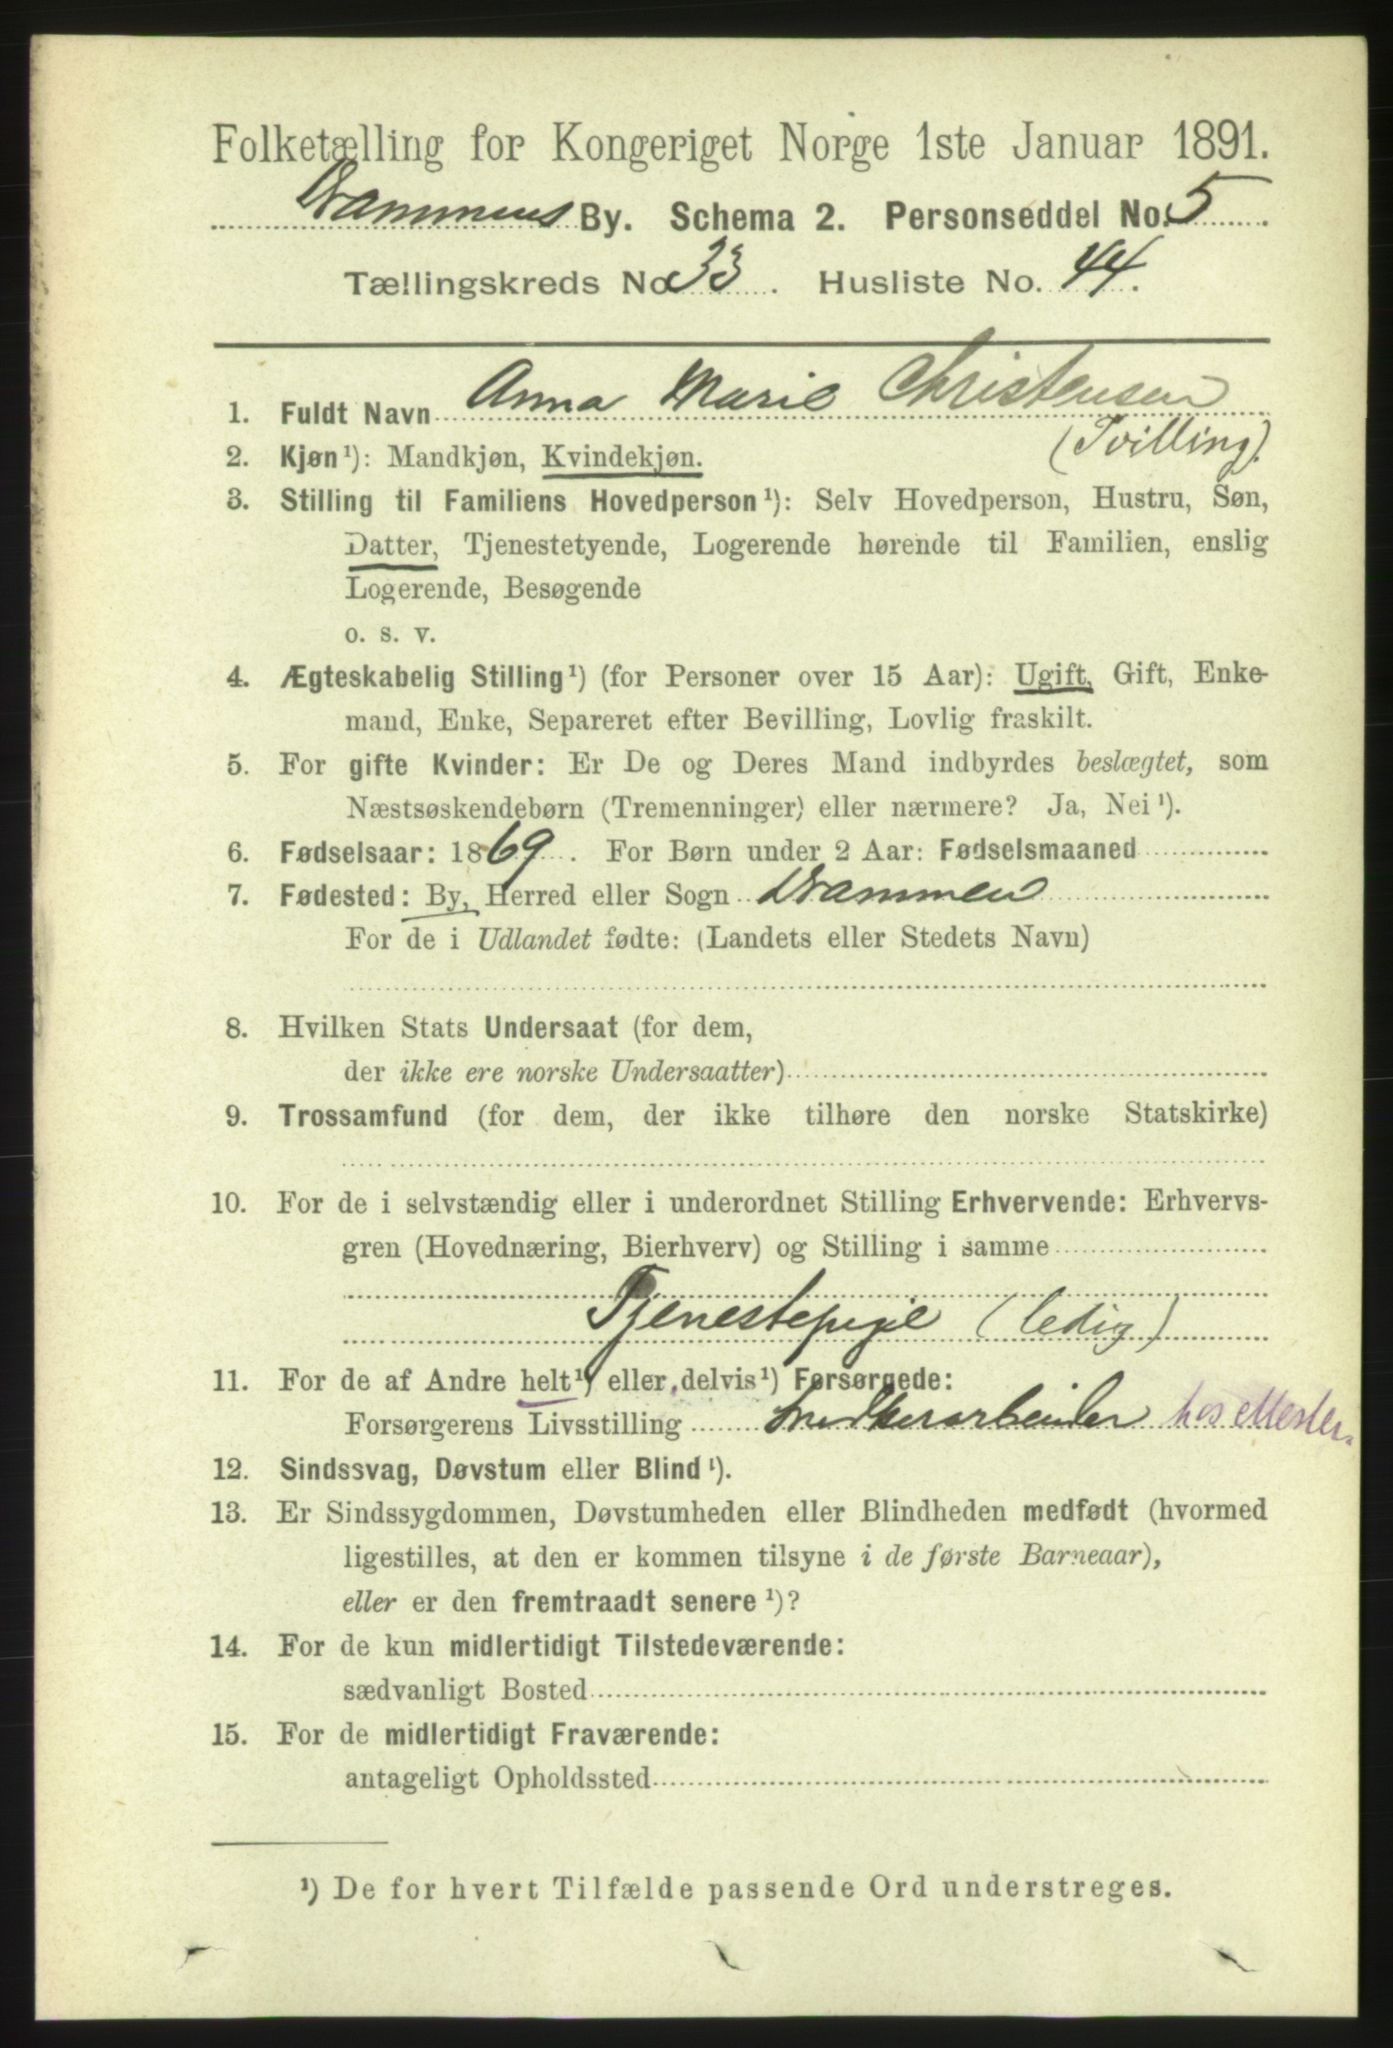 Folketælling for Kongeriget Norge 1ste Januar 1891.
Drammens By. Schema 2. Personseddel No. 5
Tællingskreds No. 33. Husliste No. 44.
1. Fuldt Navn Anna Marie Christensen
(Tvilling).
2. Kjøn¹): Mandkjøn, Kvindekjøn.
3. Stilling til Familiens Hovedperson¹): Selv Hovedperson, Hustru, Søn,
Datter, Tjenestetyende, Logerende hørende til Familien, enslig
Logerende, Besøgende
o. s. v.
4. Ægteskabelig Stilling¹) (for Personer over 15 Aar): Ugift, Gift, Enke-
mand, Enke, Separeret efter Bevilling, Lovlig fraskilt.
5. For gifte Kvinder: Er De og Deres Mand indbyrdes beslægtet, som
Næstsøskendebørn (Tremenninger) eller nærmere? Ja, Nei¹).
6. Fødselsaar: 1869. For Børn under 2 Aar: Fødselsmaaned
7. Fødested: By, Herred eller Sogn Drammen
For de i Udlandet fødte: (Landets eller Stedets Navn)
8. Hvilken Stats Undersaat (for dem,
der ikke ere norske Undersaatter)
9. Trossamfund (for dem, der ikke tilhøre den norske Statskirke)
10. For de i selvstændig eller i underordnet Stilling Erhvervende: Erhvervs-
gren (Hovednæring, Bierhverv) og Stilling i samme
Tjenestepige (ledig)
11. For de af Andre helt¹) eller delvis¹) Forsørgede:
Forsørgerens Livsstilling Snedkerarbeider hos Mester.
12. Sindssvag, Døvstum eller Blind¹).
13. Er Sindssygdommen, Døvstumheden eller Blindheden medfødt (hvormed
ligestilles, at den er kommen tilsyne i de første Barneaar),
eller er den fremtraadt senere¹)?
14. For de kun midlertidigt Tilstedeværende:
sædvanligt Bosted
15. For de midlertidigt Fraværende:
antageligt Opholdssted
¹) De for hvert Tilfælde passende Ord understreges.